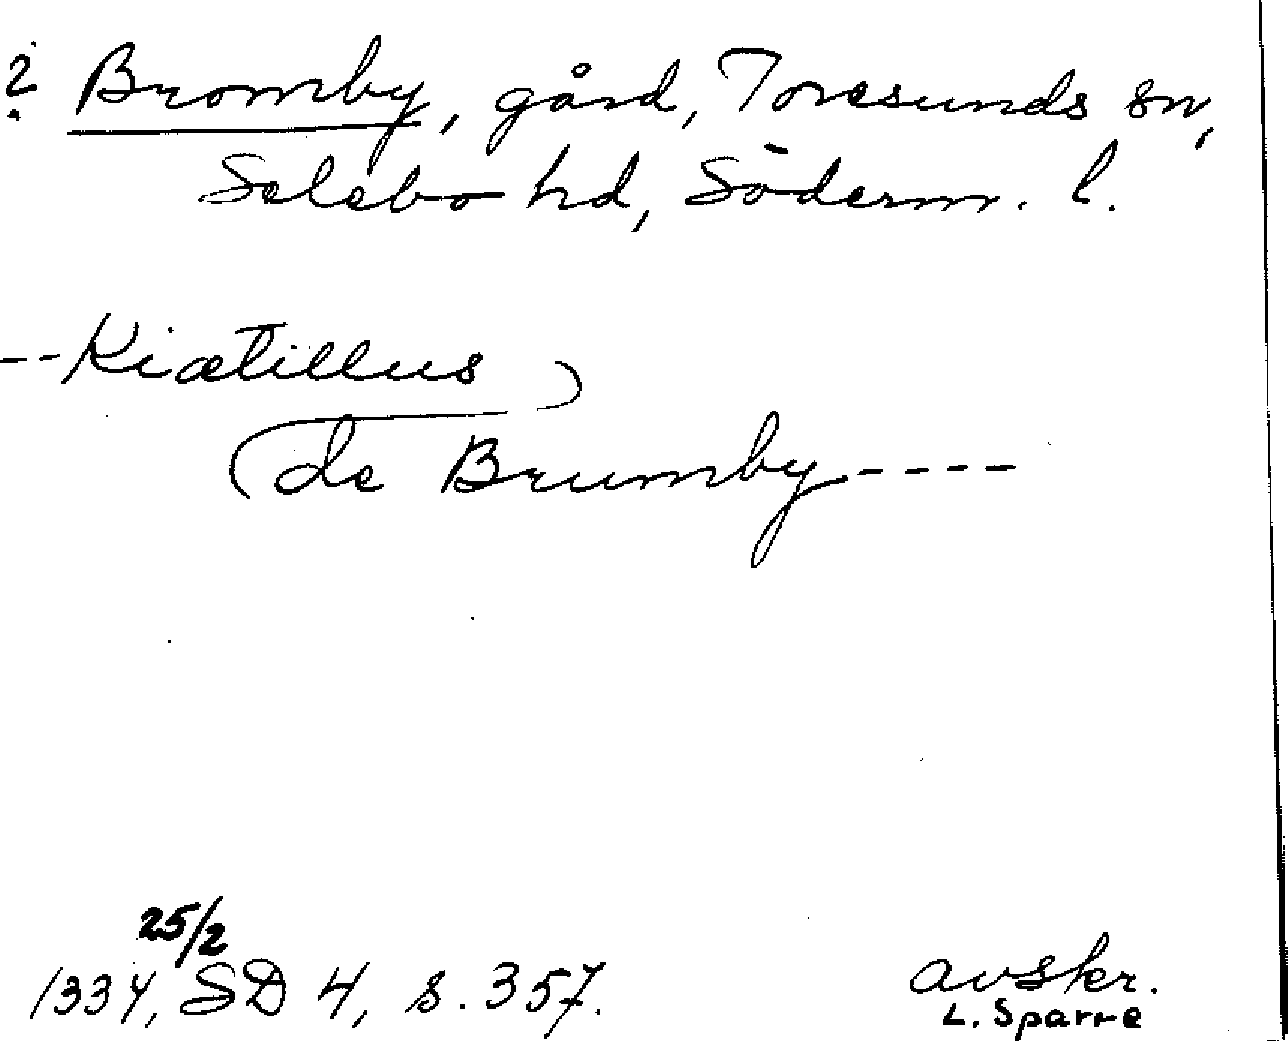 ? Bromby, gård, Toresunds sn,
Selebo hd, Söderm. l.
--Kiætillus
de Brumby----
25/2
1334, SD 4, s. 357.
avskr.
L. Sparre